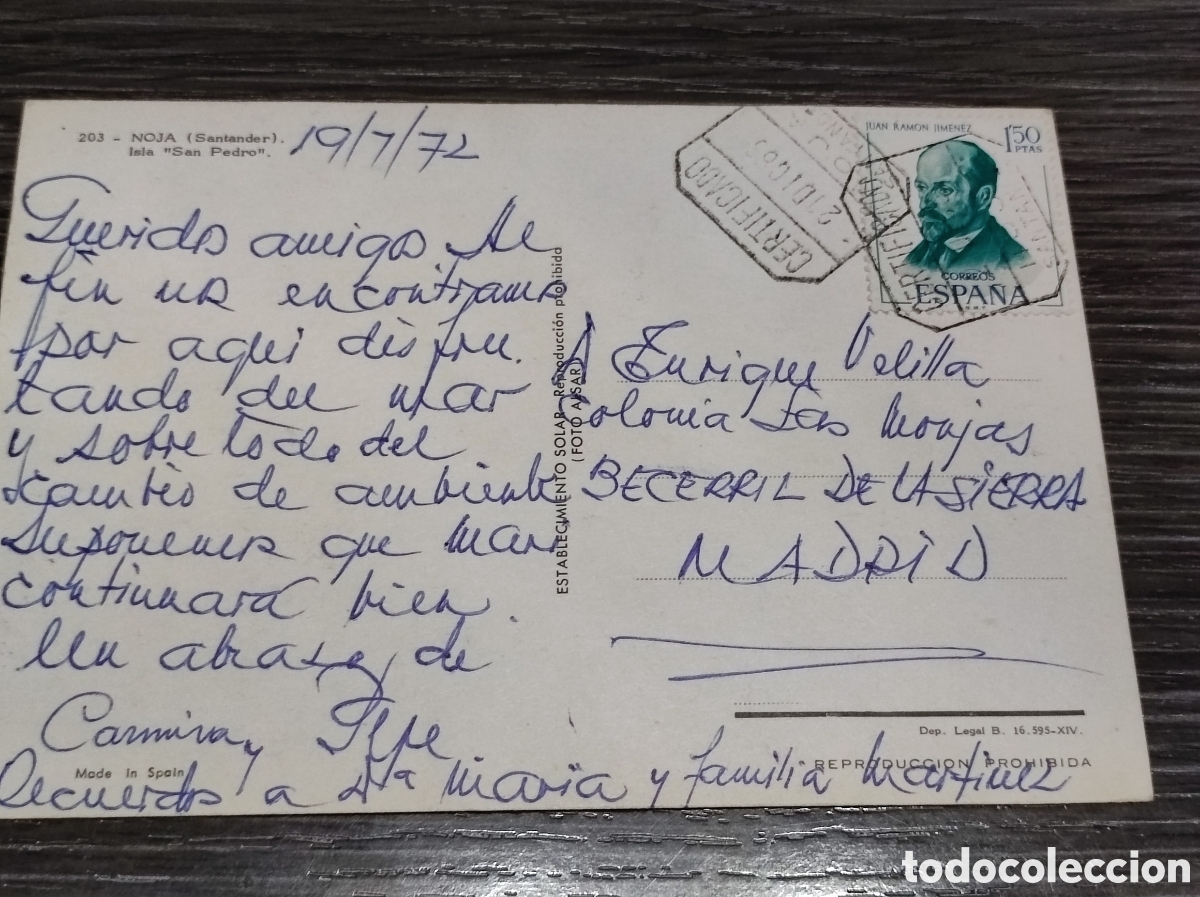 203 - NOJA (Santander).
Isla "San Pedro".
19/7/72
Queridos amigos Al
fin nos encontramos
por aqui disfru-
tando del mar
y sobre todo del
cambio de ambiente
Suponemos que Mari
continuará bien.
Un abrazo de
Carmina y Pepe
Recuerdos a Dña Maria y familia Martinez
Made in Spain
ESTABLECIMIENTO SOLAR - Reproducción prohibida
(FOTO AISAR)
CERTIFICADO
JUAN RAMON JIMENEZ
1'50
PTAS
CORREOS
ESPAÑA
CERTIFICADO
A Enrique Velilla
Colonia Las Monjas
BECERRIL DE LA SIERRA
MADRID
Dep. Legal B. 16.595-XIV.
REPRODUCCION PROHIBIDA
todocoleccion